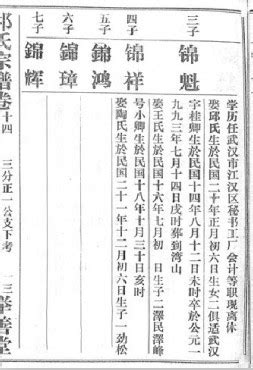 学历任武汉市江汉区秘书工厂会计等职现离休
娶邱氏生於民国二十年正月初六日生女二俱适武汉
三子
锦魁
字桂卿生於民国十四年八月十二日未时卒於公元一
九九三年七月十四日戌时葬到湾山
娶王氏生於民国十六年七月初 日生子二泽民泽峰
四子
锦祥
号小卿生於民国十八年十月三十日亥时
娶陶氏生於民国二十一年十二月初六日生子一劲松
五子
錦鸿
六子
錦璋
七子
錦辉
氏宗谱卷十四
三分正一公支下考
一三
善堂